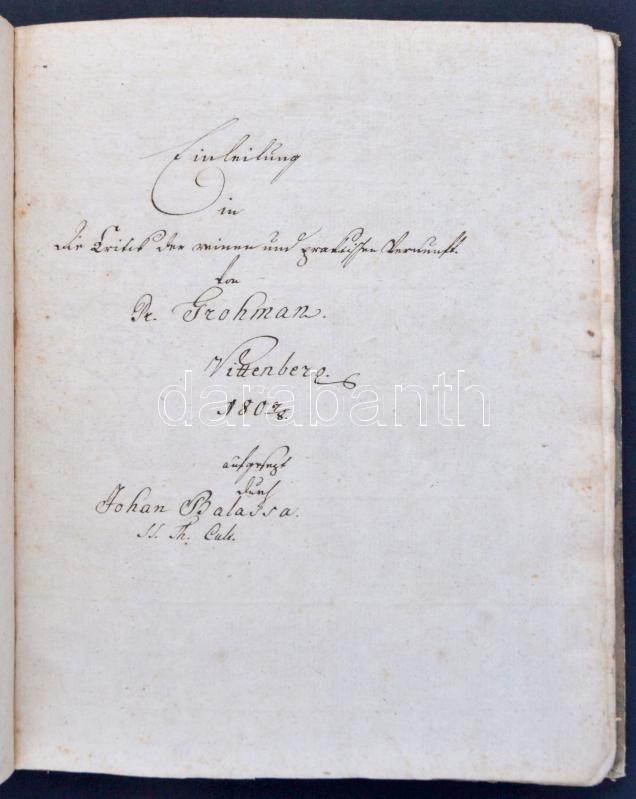 Einleitung
in
die Critik der reinen und practischen Vernunft.
von
Dr. Grohman.
Vittenberg.
180 7/8.
aufgesezt
durch
Johan Balassa.
SS. Th. Cult.
darabanth